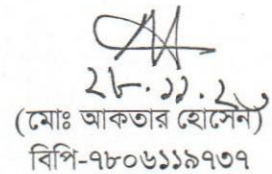 ২৮.১১.২৮
(মোঃ আকতার হোসেন)
বিপি-৭৮০৬১১৯৭৩৭